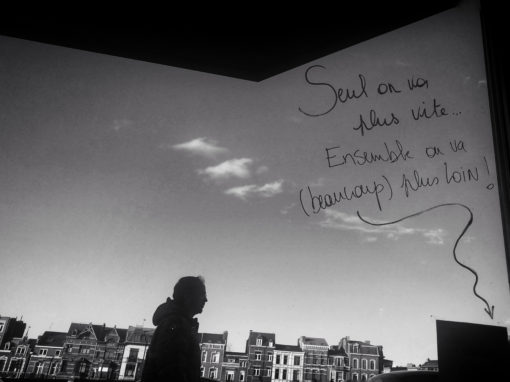 Seul on va
plus vite...
Ensemble on va
(beaucoup) plus loin !